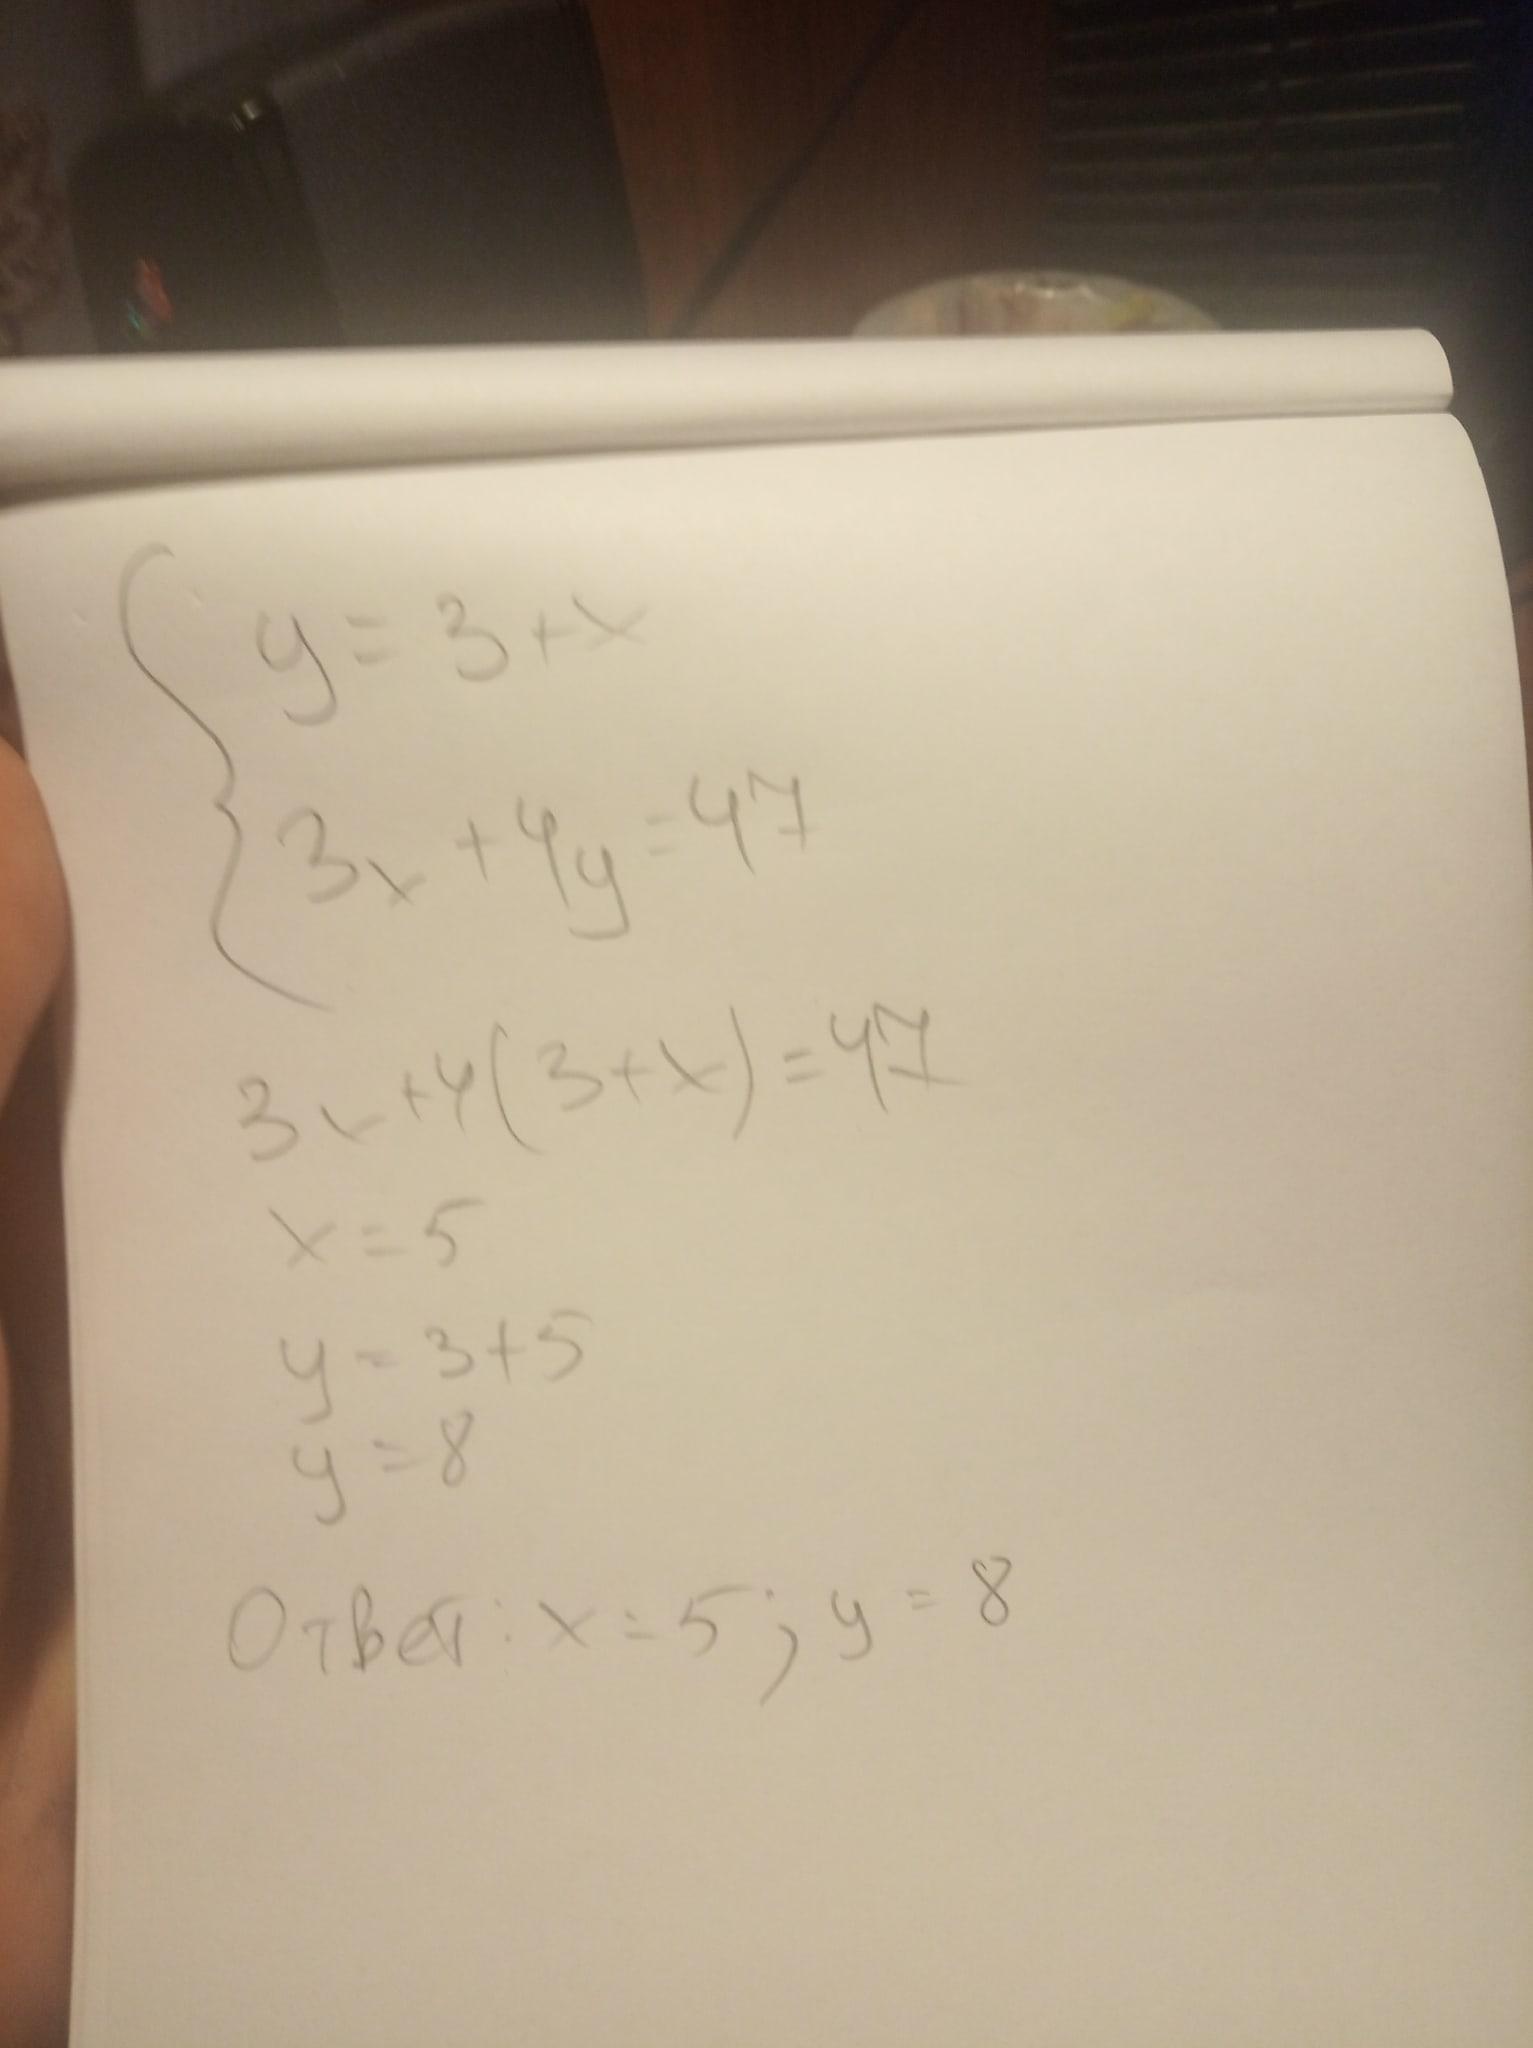 y = 3 + x
3x + 4y = 47
3x + 4(3 + x) = 47
x = 5
y = 3 + 5
y = 8
Ответ: x = 5; y = 8